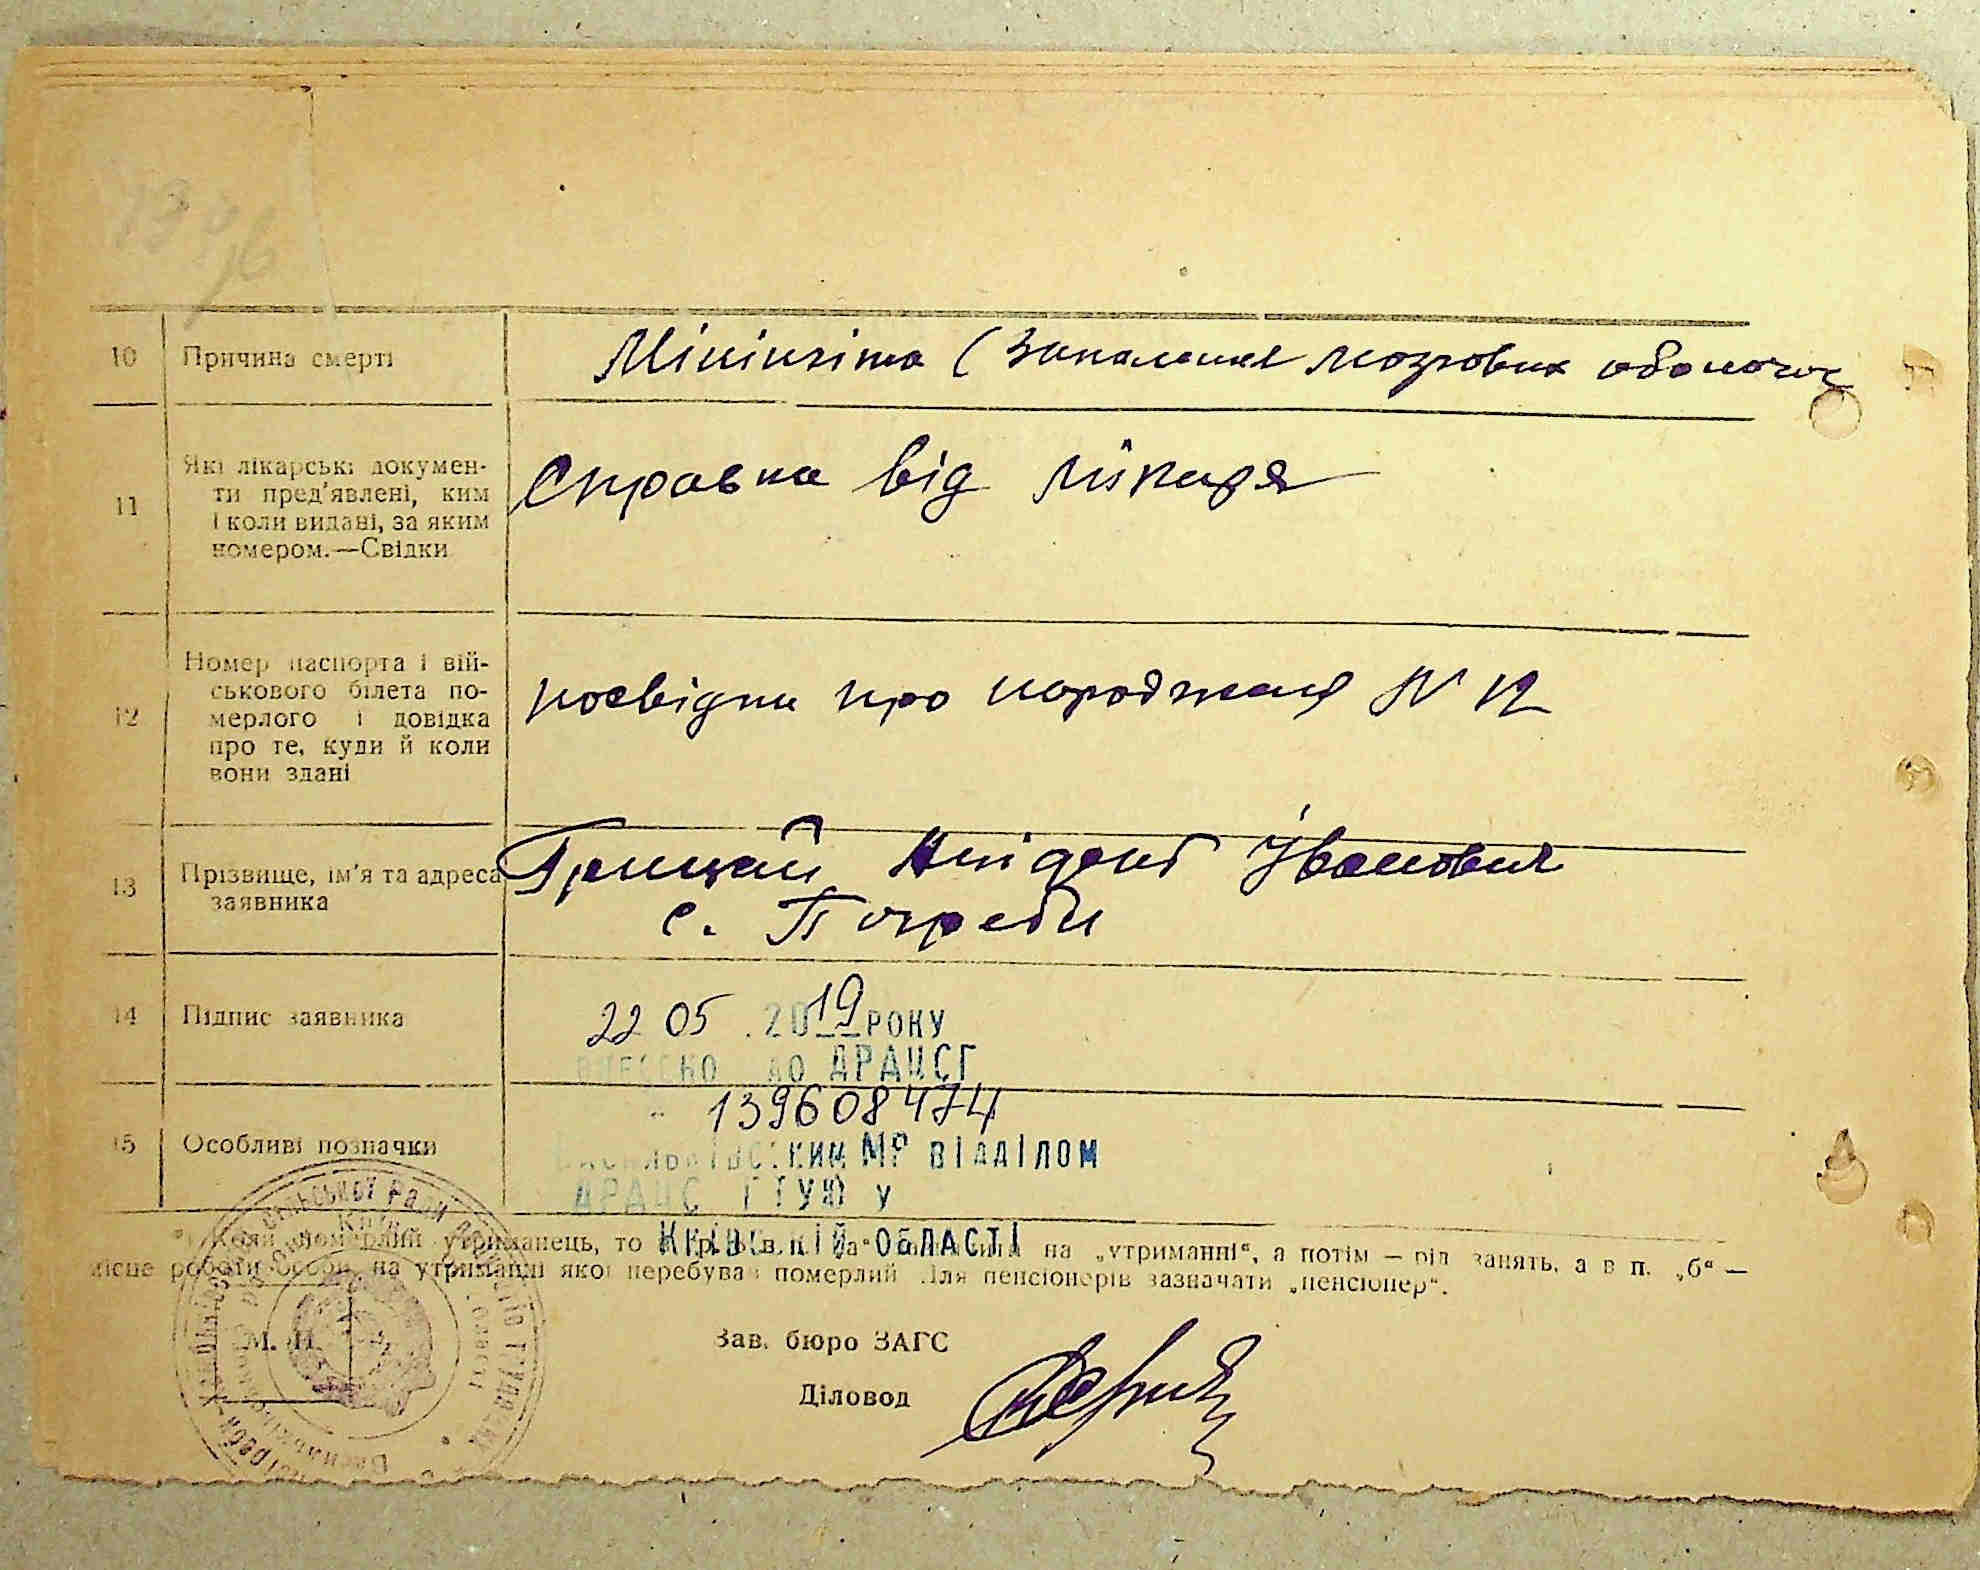 10 Причина смерті Мінінгіта (Запаленя мозгових оболочок
11 Які лікарські докумен-
ти пред'явлені, ким
і коли видані, за яким
номером.—Свідки
Справка від лікаря
12 Номер паспорта і вій-
ськового білета по-
мерлого і довідка
про те, куди й коли
вони здані
посвідка про народженя N 12
13 Прізвище, ім'я та адреса
заявника
Грицай Іванович
с. Погреби
14 Підпис заявника
22 05 .2019 РОКУ
ВНЕСЕНО ДО ДРАЦСГ
139608474
15 Особливі позначки
ВАСИЛЬКІВСЬКИМ МР ВІДДІЛОМ
ДРАЦС ГТУЮ У
КИЇВСЬКІЙ ОБЛАСТІ
*) Коли померлий утриманець, то в гр. на „утриманні“, а потім — рід занять, а в п. „б“ —
місце роботи особи, на утриманні якої перебував померлий. Для пенсіонерів зазначати „пенсіонер“.
М. П.
Зав. бюро ЗАГС
Діловод